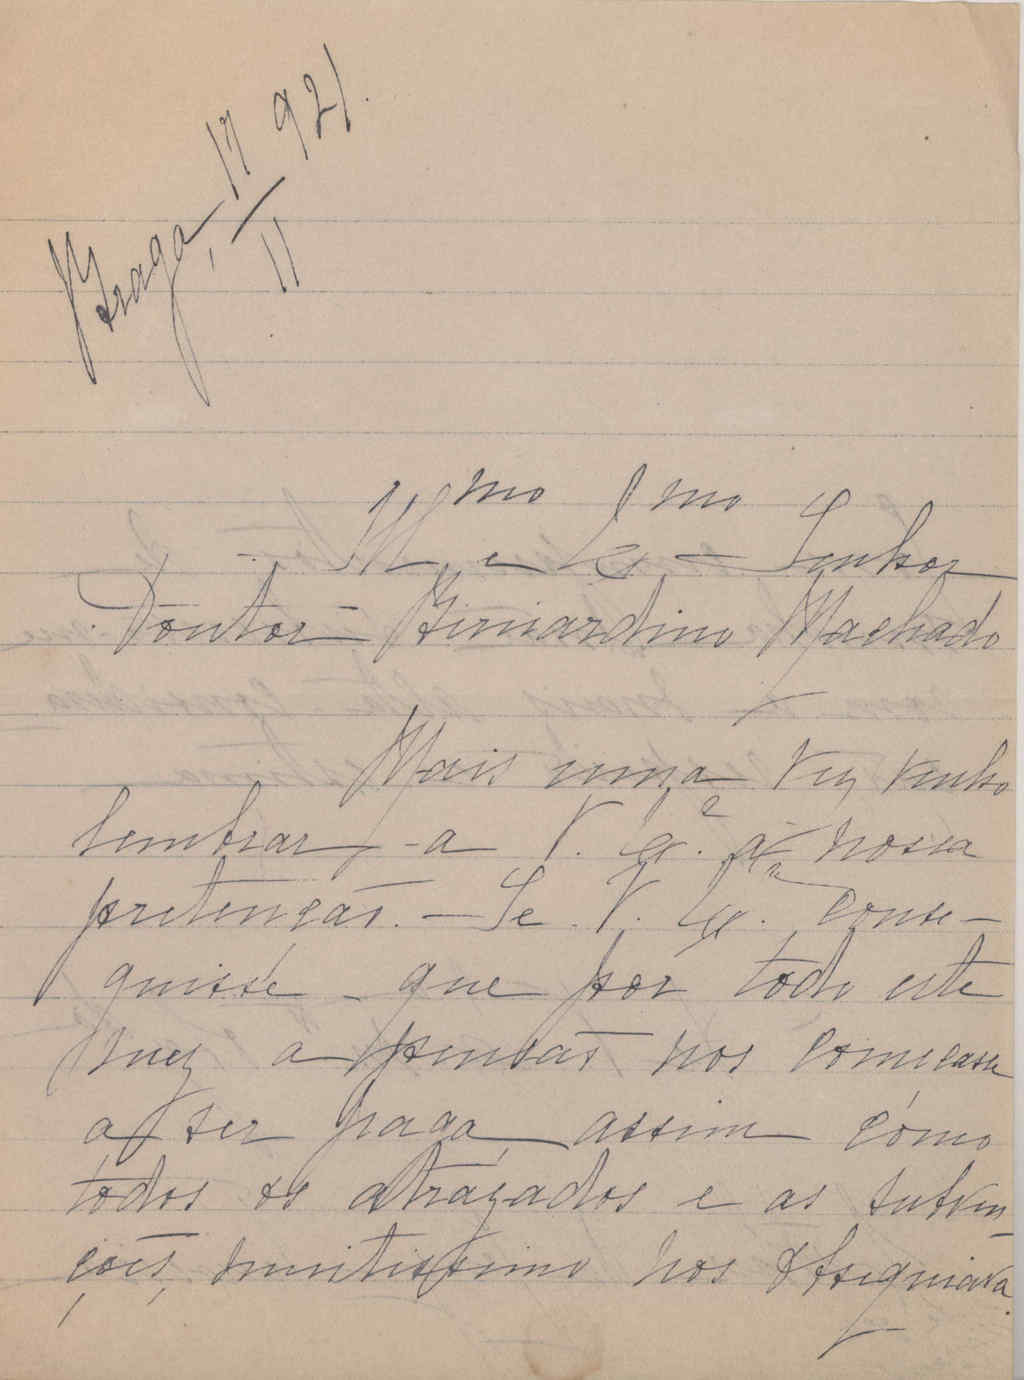 Braga, 17/11 921.
Ill.mo e Ex.mo Senhor
Doutor Bernardino Machado
Mais uma vez venho
lembrar a V. Ex.ª a nossa
pretenção. — Se V. Ex.ª conse-
guisse que por todo este
mez a pensão nos começasse
a ser paga, assim como
todos os atrazados e as subven-
ções, muitissimo nos obsequiava.